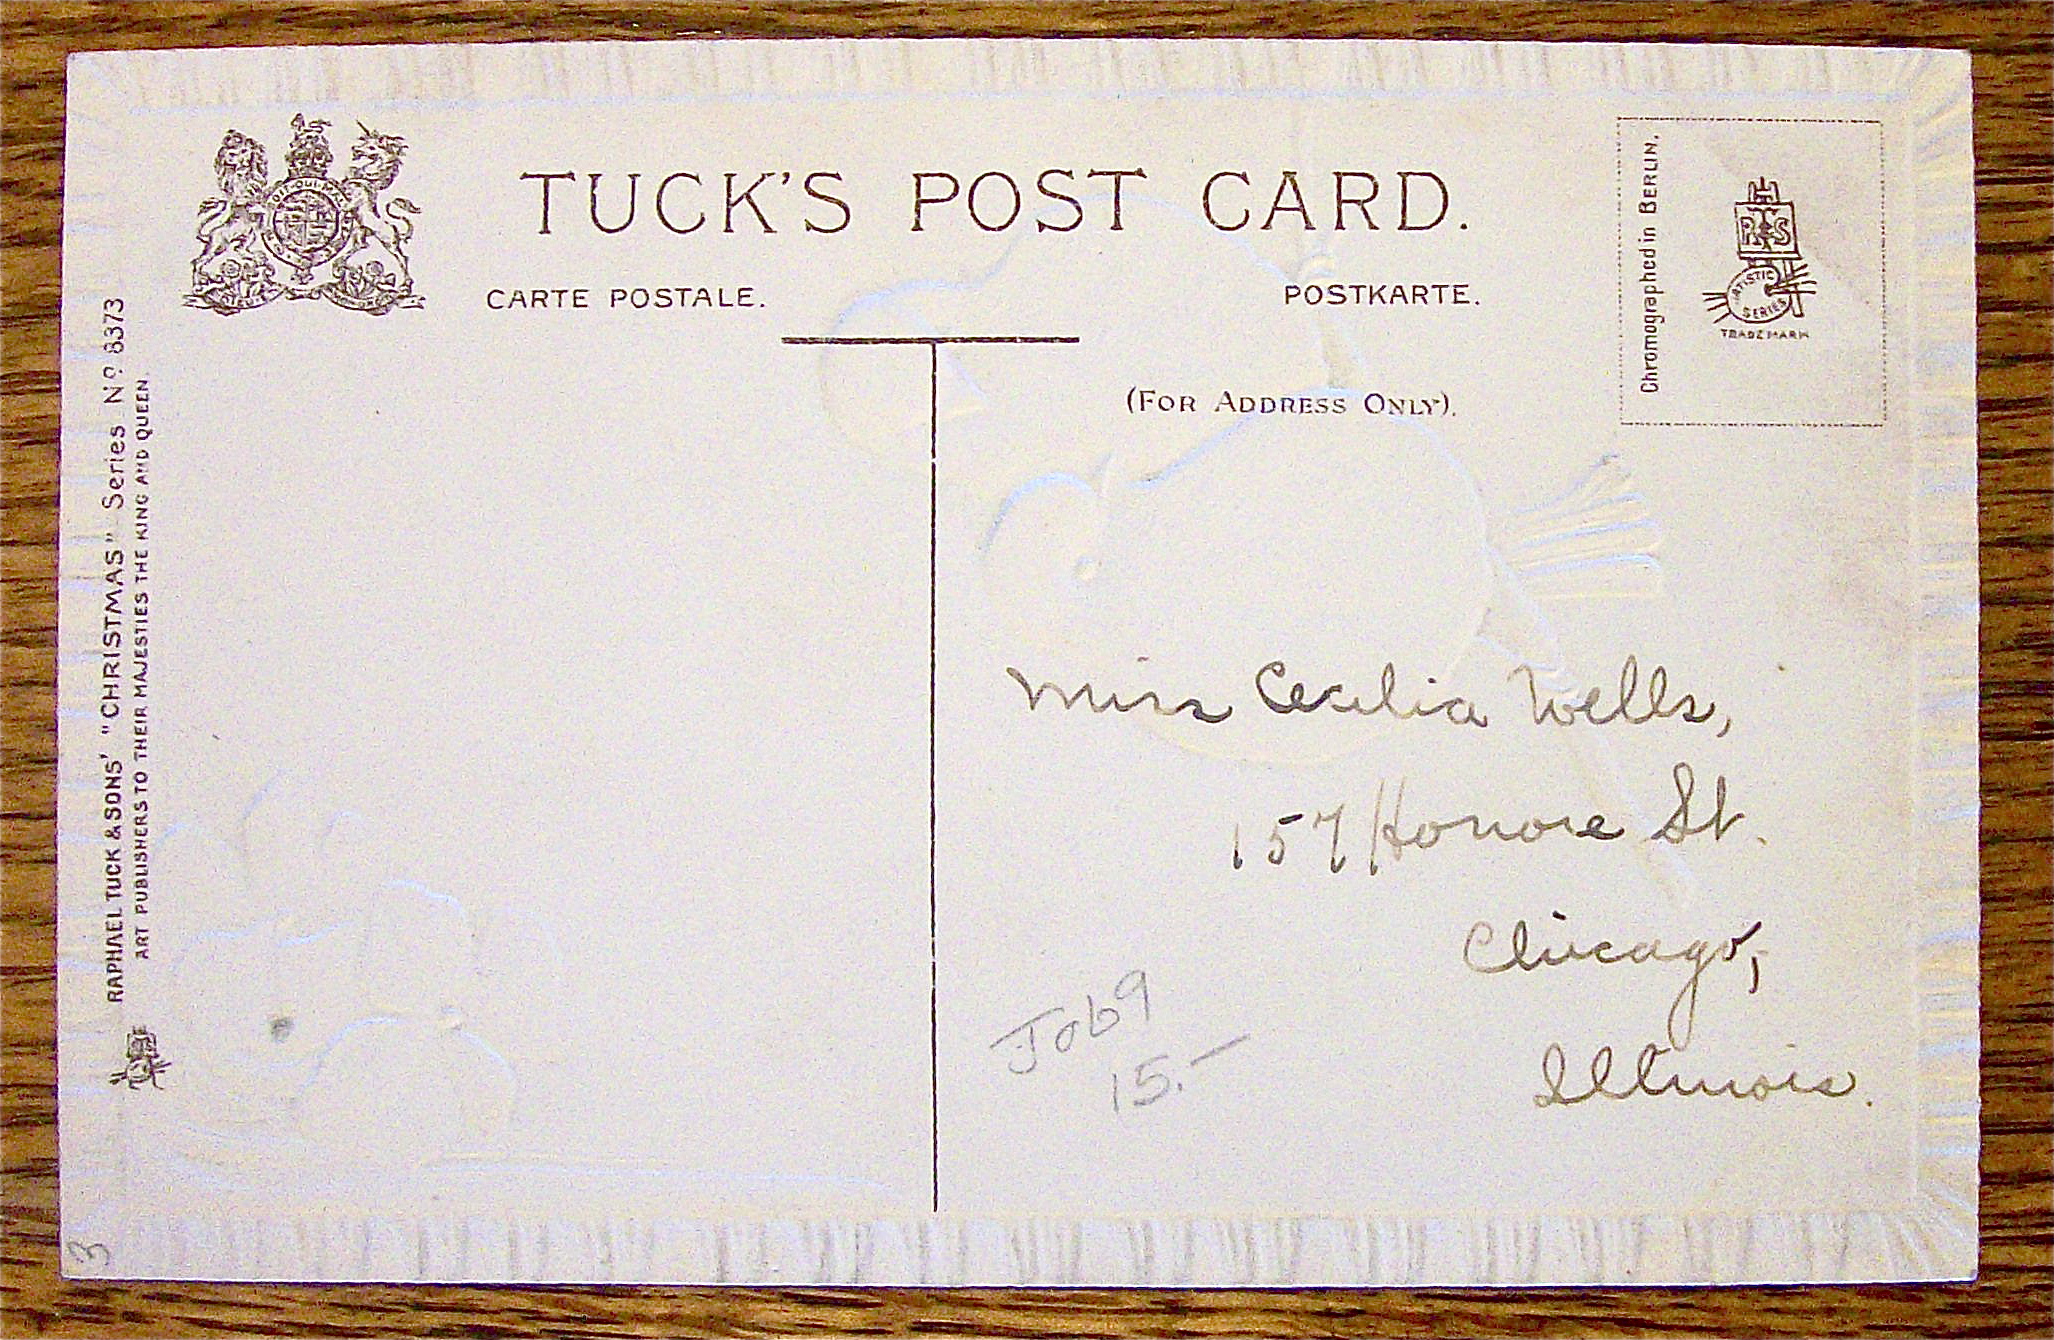 TUCK'S POST CARD.
CARTE POSTALE.
POSTKARTE.
(FOR ADDRESS ONLY).
Chromographed in BERLIN.
R.T.S
ARTISTIC
SERIES
TRADE MARK
RAPHAEL TUCK & SONS' "CHRISTMAS" Series Nº 8373
ART PUBLISHERS TO THEIR MAJESTIES THE KING AND QUEEN.
Miss Cecilia Wells,
157 Honore St.
Chicago,
Illinois.
Job9
15.–
3